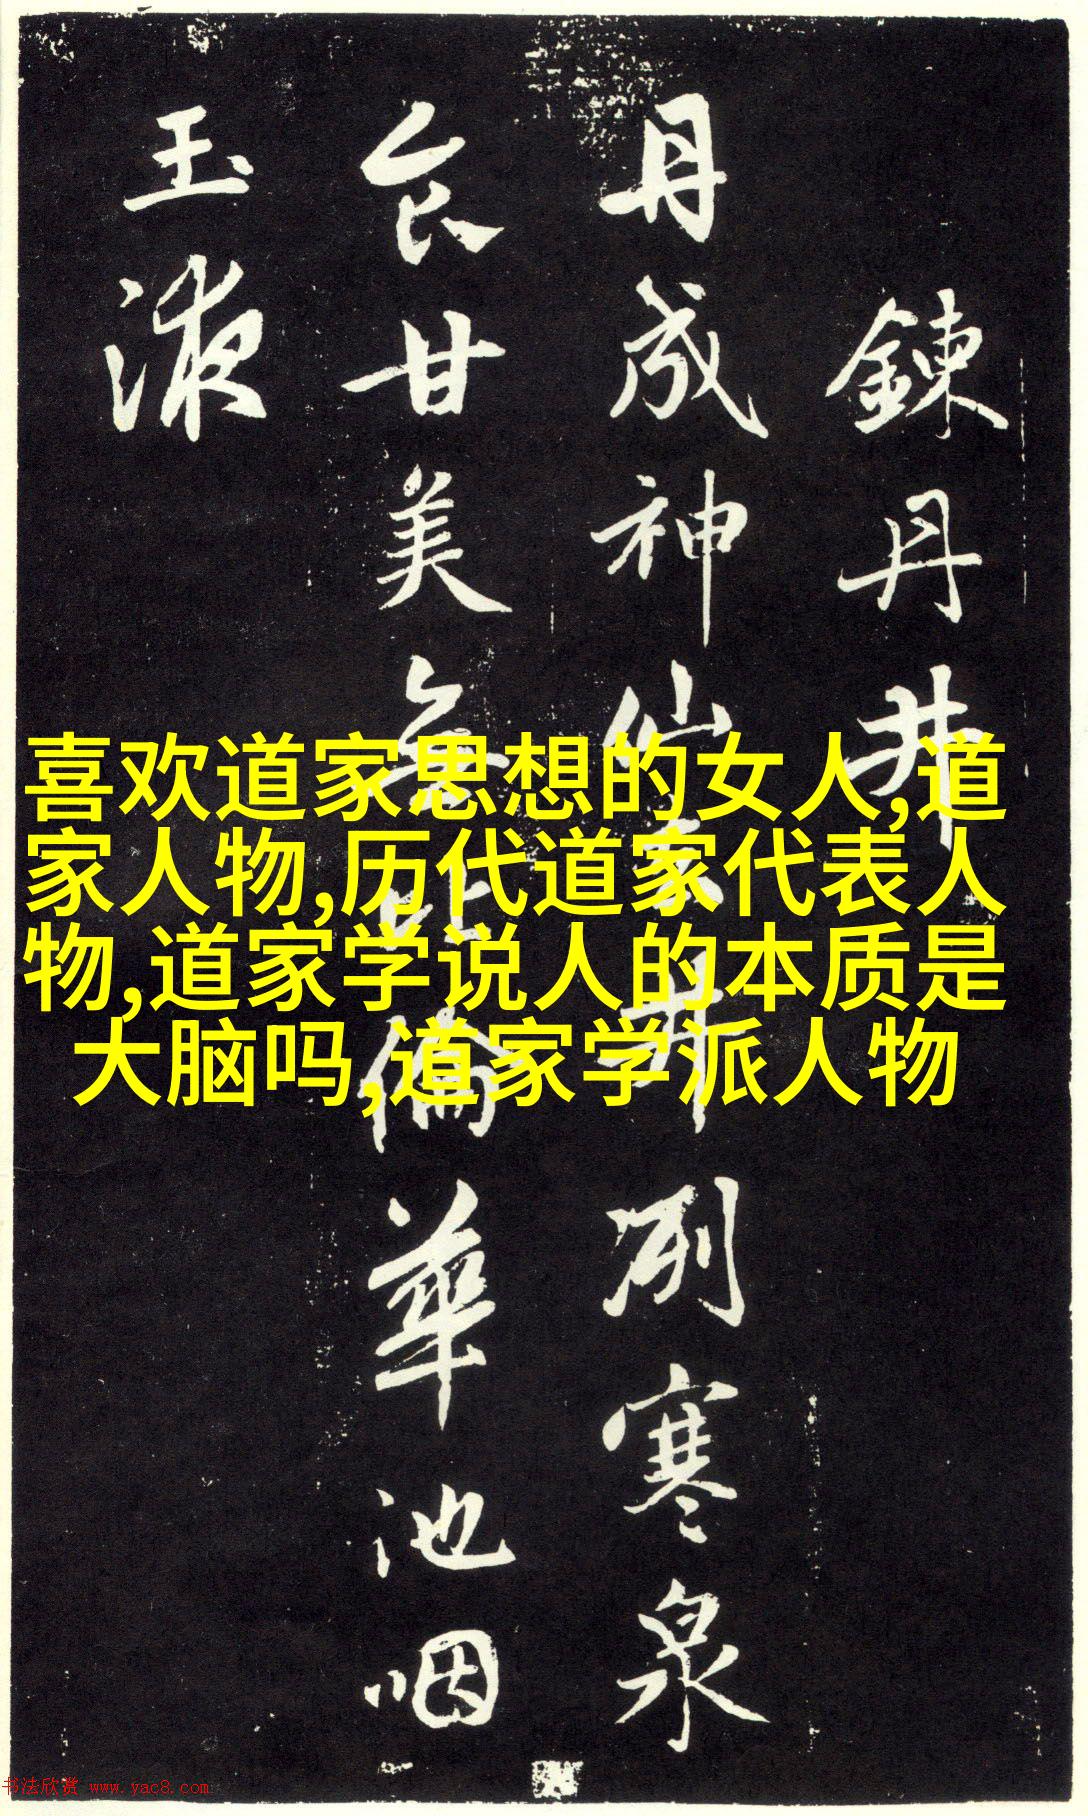 鍊丹井
丹成神仙去井冽寒泉
食甘美無比倫華池咽
玉液
喜欢道家思想的女人,道
家人物,历代道家代表人
物,道家学说人的本质是
大脑吗,道家学派人物
书法欣赏 www.yac8.com